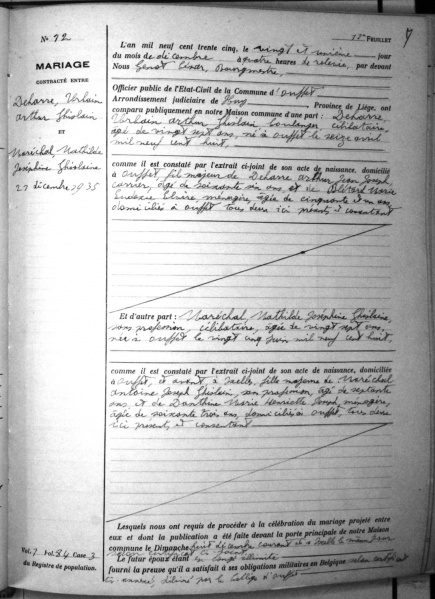 N° 12
MARIAGE
CONTRACTÉ ENTRE
Deharre, Urbain
Arthur Ghislain
ET
Maréchal, Mathilde
Joséphine Ghislaine
21 décembre 1935
FEUILLET
L'an mil neuf cent trente cinq, le vingt et unième jour
du mois de décembre à quatre heures de relevée, par devant
Nous Bourgmestre,
Officier public de l'Etat-Civil de la Commune d'Ouffet
Arrondissement judiciaire de Huy, Province de Liége, ont
comparu publiquement en notre Maison commune d'une part : Deharre,
Urbain Arthur Ghislain, boulanger, célibataire,
âgé de vingt sept ans, né à Ouffet le seize avril
mil neuf cent huit,
comme il est constaté par l'extrait ci-joint de son acte de naissance, domicilié
à Ouffet, fils majeur de Deharre Arthur Jean Joseph
carrier, âgé de soixante six ans et de Marie
ménagère, âgée de cinquante et un ans
domiciliés à Ouffet tous deux ici présents et consentant
Et d'autre part : Maréchal, Mathilde Joséphine Ghislaine,
sans profession, célibataire, âgée de vingt sept ans,
née à Ouffet le vingt cinq juin mil neuf cent huit,
comme il est constaté par l'extrait ci-joint de son acte de naissance, domiciliée
à Ouffet, et avant à Ixelles, fille majeure de Maréchal
Antoine Joseph Ghislain, son profession, âgé de septante
ans et de Marie Henriette Joseph, ménagère,
âgée de soixante trois ans, domiciliés à Ouffet, tous deux
ici présents et consentant
Lesquels nous ont requis de procéder à la célébration du mariage projeté entre
eux et dont la publication a été faite devant la porte principale de notre Maison
commune le Dimanche huit décembre courant et à Ixelles le même jour
Le futur époux étant en congé illimité
fourni la preuve qu'il a satisfait à ses obligations militaires en Belgique selon certificat
ci-annexé délivré par le Collège d'Ouffet
Vol. 7 Fol. 84 Case 3
du Registre de population.